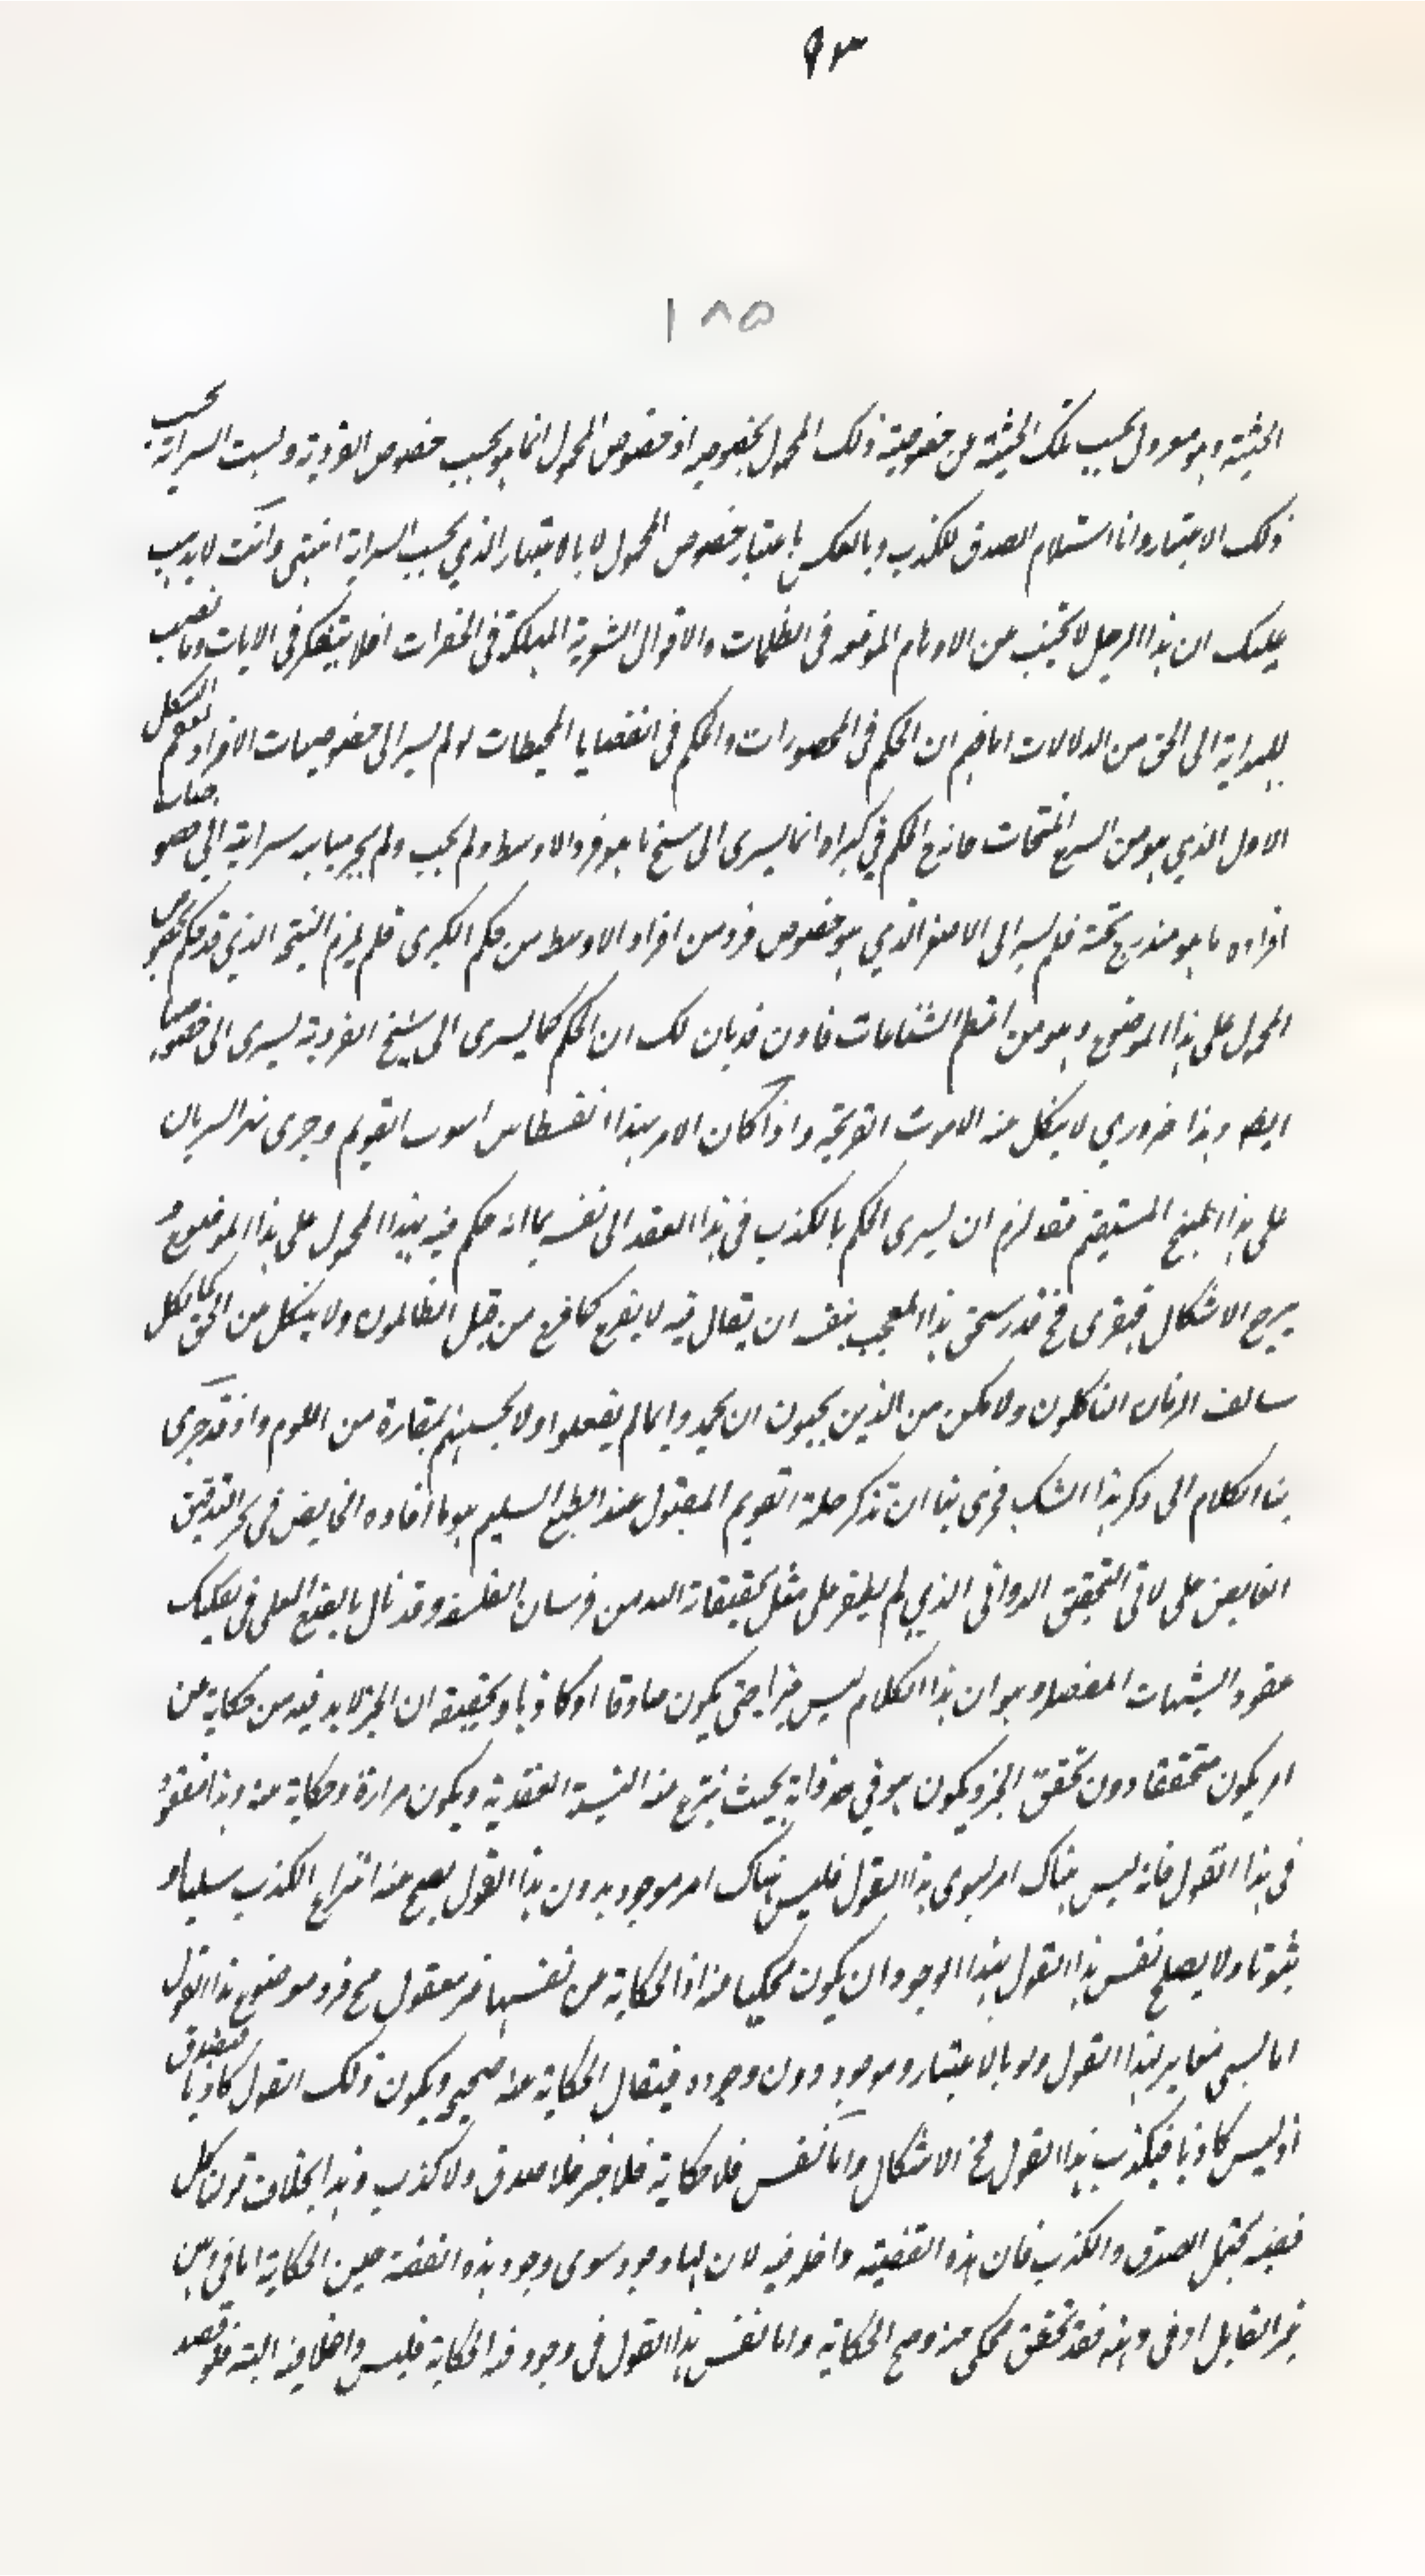 ٩٣
١٨٥
الحيثية وهو معزول بحسب تلك الحيثية عن خصوصية ذلك المحمول بخصوصه اذ خصوص المحمول انما هو بحسب خصوص الفردية وليست السراية بحسب
ذلك الاعتبار وانما استلزام الصدق للكذب وبالعكس باعتبار خصوص المحمول لا بالاعتبار الذي بحسب السراية انتهى وانت لا يذهب
عليك ان هذا الرجل لا يجتنب عن الاوهام الموقعة في الظلمات والاقوال الشعرية المهلكة في الخطرات افلا يتفكر في الايات وما نصب
للهداية الى الحق من الدلالات اما فهم ان الحكم في المحصورات والحكم في القضايا المحيطات لو لم يسر الى خصوصيات الافراد لعقم الشكل
الاول الذي هو من المنتجات فان الحكم في كبراه انما يسرى الى سنخ ما هو فرد الاوسط ولم يجب ولم يجز سراية الى خصوصيات
افراده ما هو مندرج تحته فلم يسر الى الاصغر الذي هو خصوص فرد من افراد الاوسط من حكم الكبرى فلم يلزم النتيجة الذي قد حكم بخصوص
المحمول على هذا الموضوع وهو من اعظم الشناعات فاذن قد بان لك ان الحكم كما يسرى الى سنخ الفردية يسرى الى خصوصها
ايضا وهذا ضروري لا ينكل منه القريحة واذا كان الامر بهذا القسطاس القويم وجرى السريان
على هذا المنهج المستقيم فقد لزم ان يسرى الحكم بالكذب في هذا العقد الى نفسه بما انه حكم فيه بهذا المحمول على هذا الموضوع و
يرجع الاشكال فيقرى فح قد استحق هذا المعجب بنفسه ان يقال فيه لا يقع كما وقع من قبل الظالمون ولا ينكل من الحق كما نكل
سالف الزمان الناكلون ولا يكن من الذين يحبون ان يحمدوا بما لم يفعلوا ولا يحسبنهم بمفازة من اللوم واذ قد جرى
بنا الكلام الى ذكر هذا الشك فحرى بنا ان نذكر حله القويم المقبول عند الطبع السليم هو ما افاده الخايض في بحر التدقيق
الغايص على لالي التحقيق الدواني الذي لم يطلع على مثل تحقيقاته احد من فرسان الفلسفة وقد نال بالقدح المعلى في تفكيك
عقود الشبهات المعضلة وهو ان هذا الكلام ليس خبرا حتى يكون صادقا او كاذبا وتحقيقه ان الخبر لا بد فيه من حكاية عن
امر يكون متحققا دون تحقق الخبر ويكون هو في حد ذاته بحيث ينتزع منه النسبة العقدية ويكون مرآة وحكاية عنه وهذا مفقود
في هذا القول فانه ليس هناك امر سوى هذا القول فليس هناك امر موجود بدون هذا القول يصح عنه انتزاع الكذب سلبا او
ثبوتا ولا يصلح نفس هذا القول بهذا الوجود ان يكون محكيا عنه اذ الحكاية عن نفسها غير معقول فح فرد موضوع هذا القول
اما شيء مغاير لهذا القول ولو بالاعتبار وموجود دون وجوده فيقال الحكاية عنه صحيح ويكون ذلك القول كاذبا فيصدق
او ليس كاذبا فيكذب هذا القول فح الاشكال واما نفسه فلا حكاية فلا خبر فلا صدق ولا كذب وهذا بخلاف قول كل
قضية يحتمل الصدق والكذب فان هذه القضية داخلة فيه لان لها وجود سوى وجود هذه القضية حين الحكاية اما في ذهن
غير القايل او في ذهنه فقد تحقق محكي عنه وصح الحكاية واما نفس هذا القول في وجوده الحكاية فليس داخلا فيه البتة فلو قصد